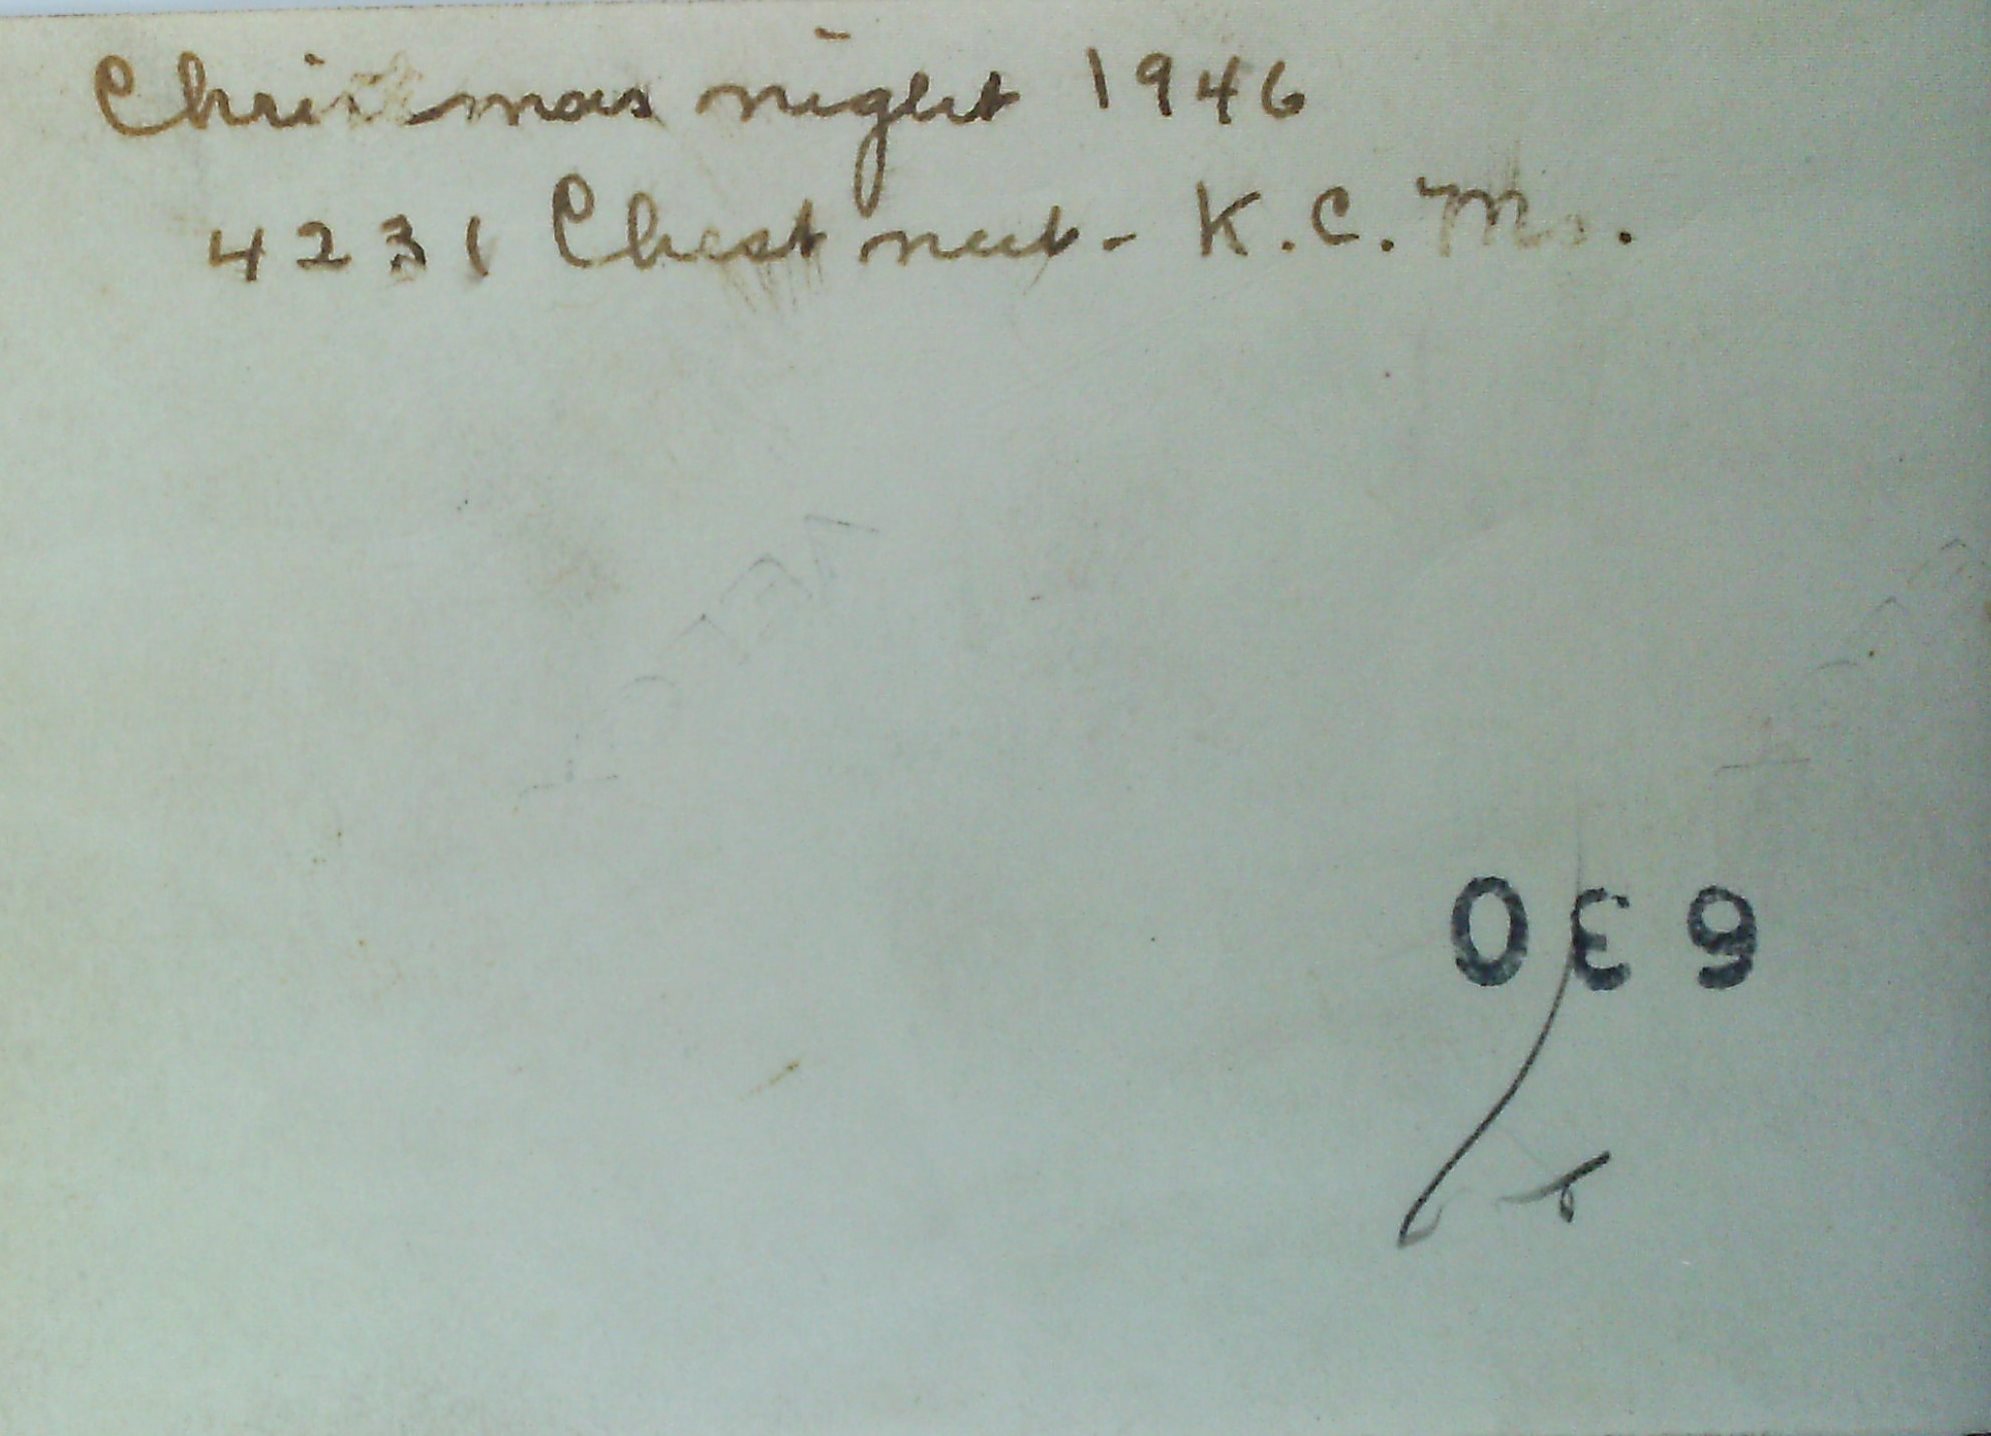 Christmas night 1946
4231 Chestnut - K.C. Mo.
630